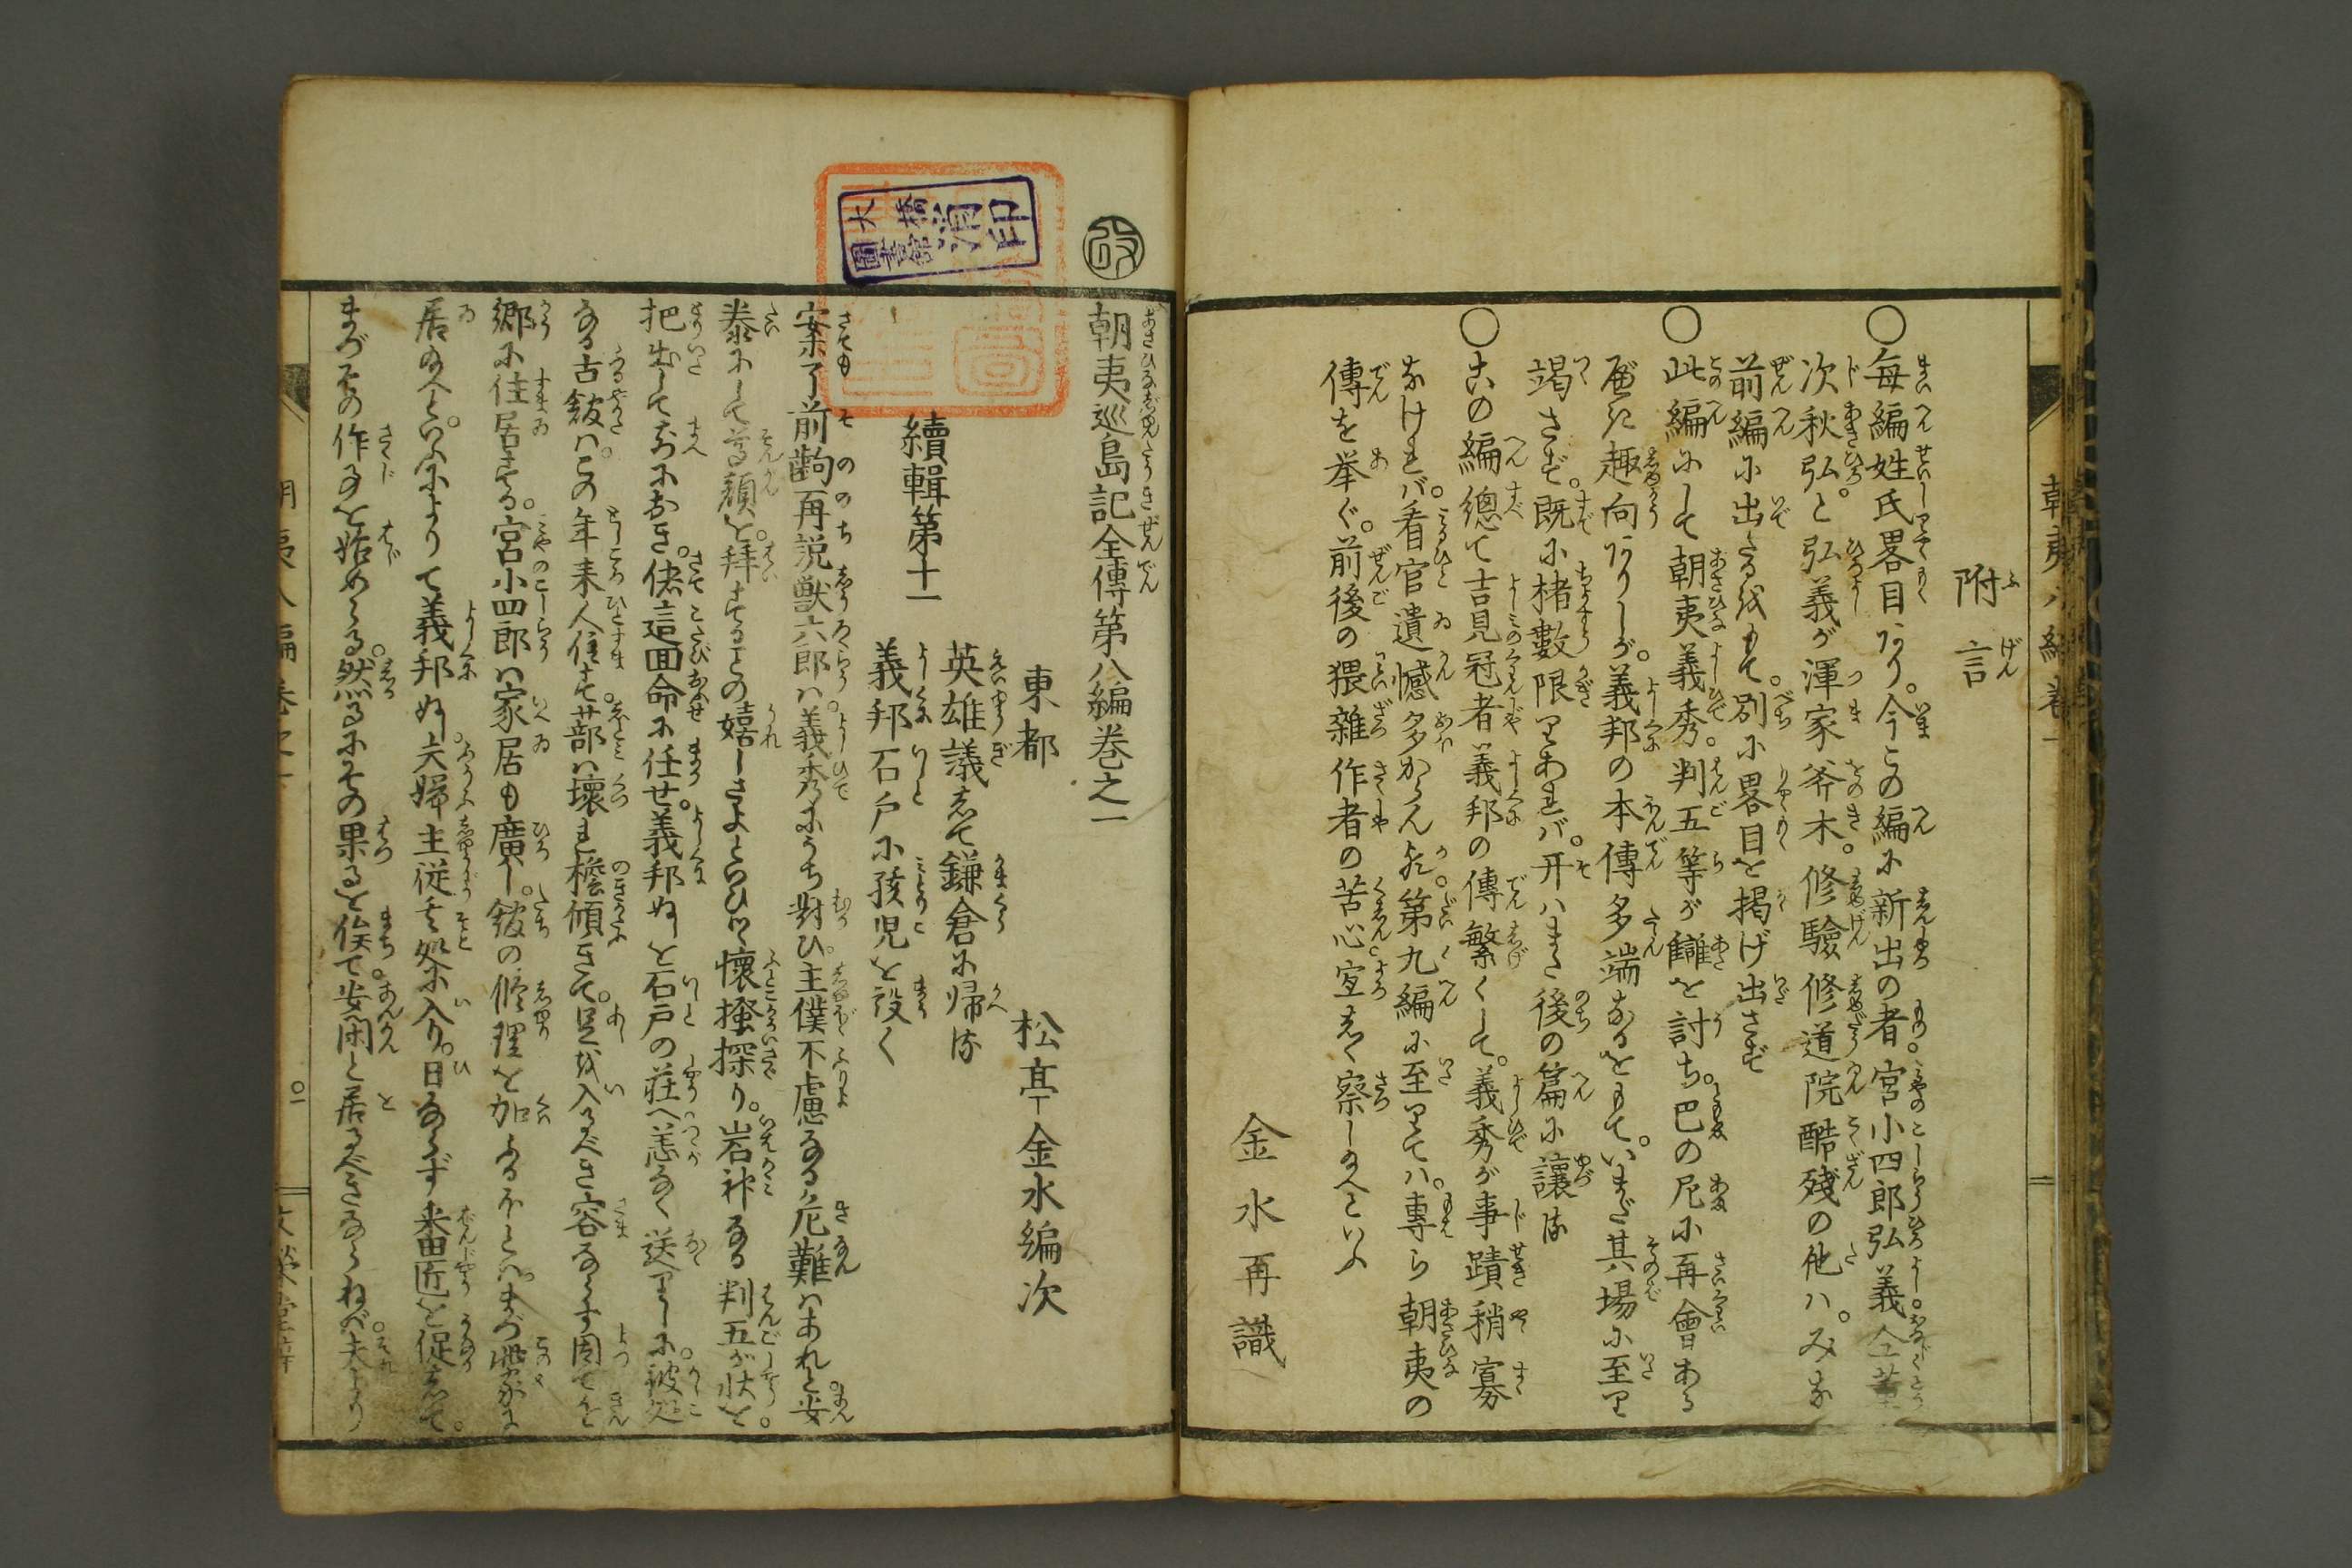 附言
〇毎編姓氏畧目あり。今この編に新出の者。宮小四郎弘義。仝
次秋弘。と弘義が渾家斧木。修驗修道院酷殘の他ハ。みな
前編に出たるをもて。別に畧目を掲げ出さず
〇此編にして朝夷義秀。判五等が讎を討ち。巴の尼に再會ある
べき趣向ありしが。義邦の本傳多端なるをもて。いまだ其場に至り
竭さず。既に楮數限りあれバ。开ハまた後の篇に讓る
〇この編總て吉見冠者義邦の傳繁くして。義秀が事蹟稍寡
なけれバ。看官遺憾多からん歟。第九編に至りてハ。專ら朝夷の
傳を挙ぐ。前後の猥雜作者の苦心宜しく察し給へといふ
金水再識
改
朝夷巡島記全傳第八編巻之一
東都 松亭金水編次
續輯第十一
英雄議して鎌倉に帰る
義邦石戸に孩児を設く
案了前齣再説獣六郎ハ。義秀にうち對ひ。主僕不慮なる危難ハあれど安
泰にして尊顔を。拝することの嬉しさよといひつゝ懷掻探り。岩神なる判五が状を。
把出して前におき。偖這回命に任せ。義邦ぬしを石戸の莊へ恙なく送りしに。彼処
なる古舘ハ。この年来人住まず。蔀ハ壞れ檐傾きて。足を入るべき容ならず周て近
郷に住居する。宮小四郎ハ家居も廣し。舘の修理を加ふるほどハ。まづ我家に
居給へと。いふによりて義邦ぬし。夫婦主従其処に入り。日ならず番匠を促して。
まづその作事を始めらる。然るにその果るを俟て。安閑と居るべきならねバ。夫より
大橋圖書舘消印